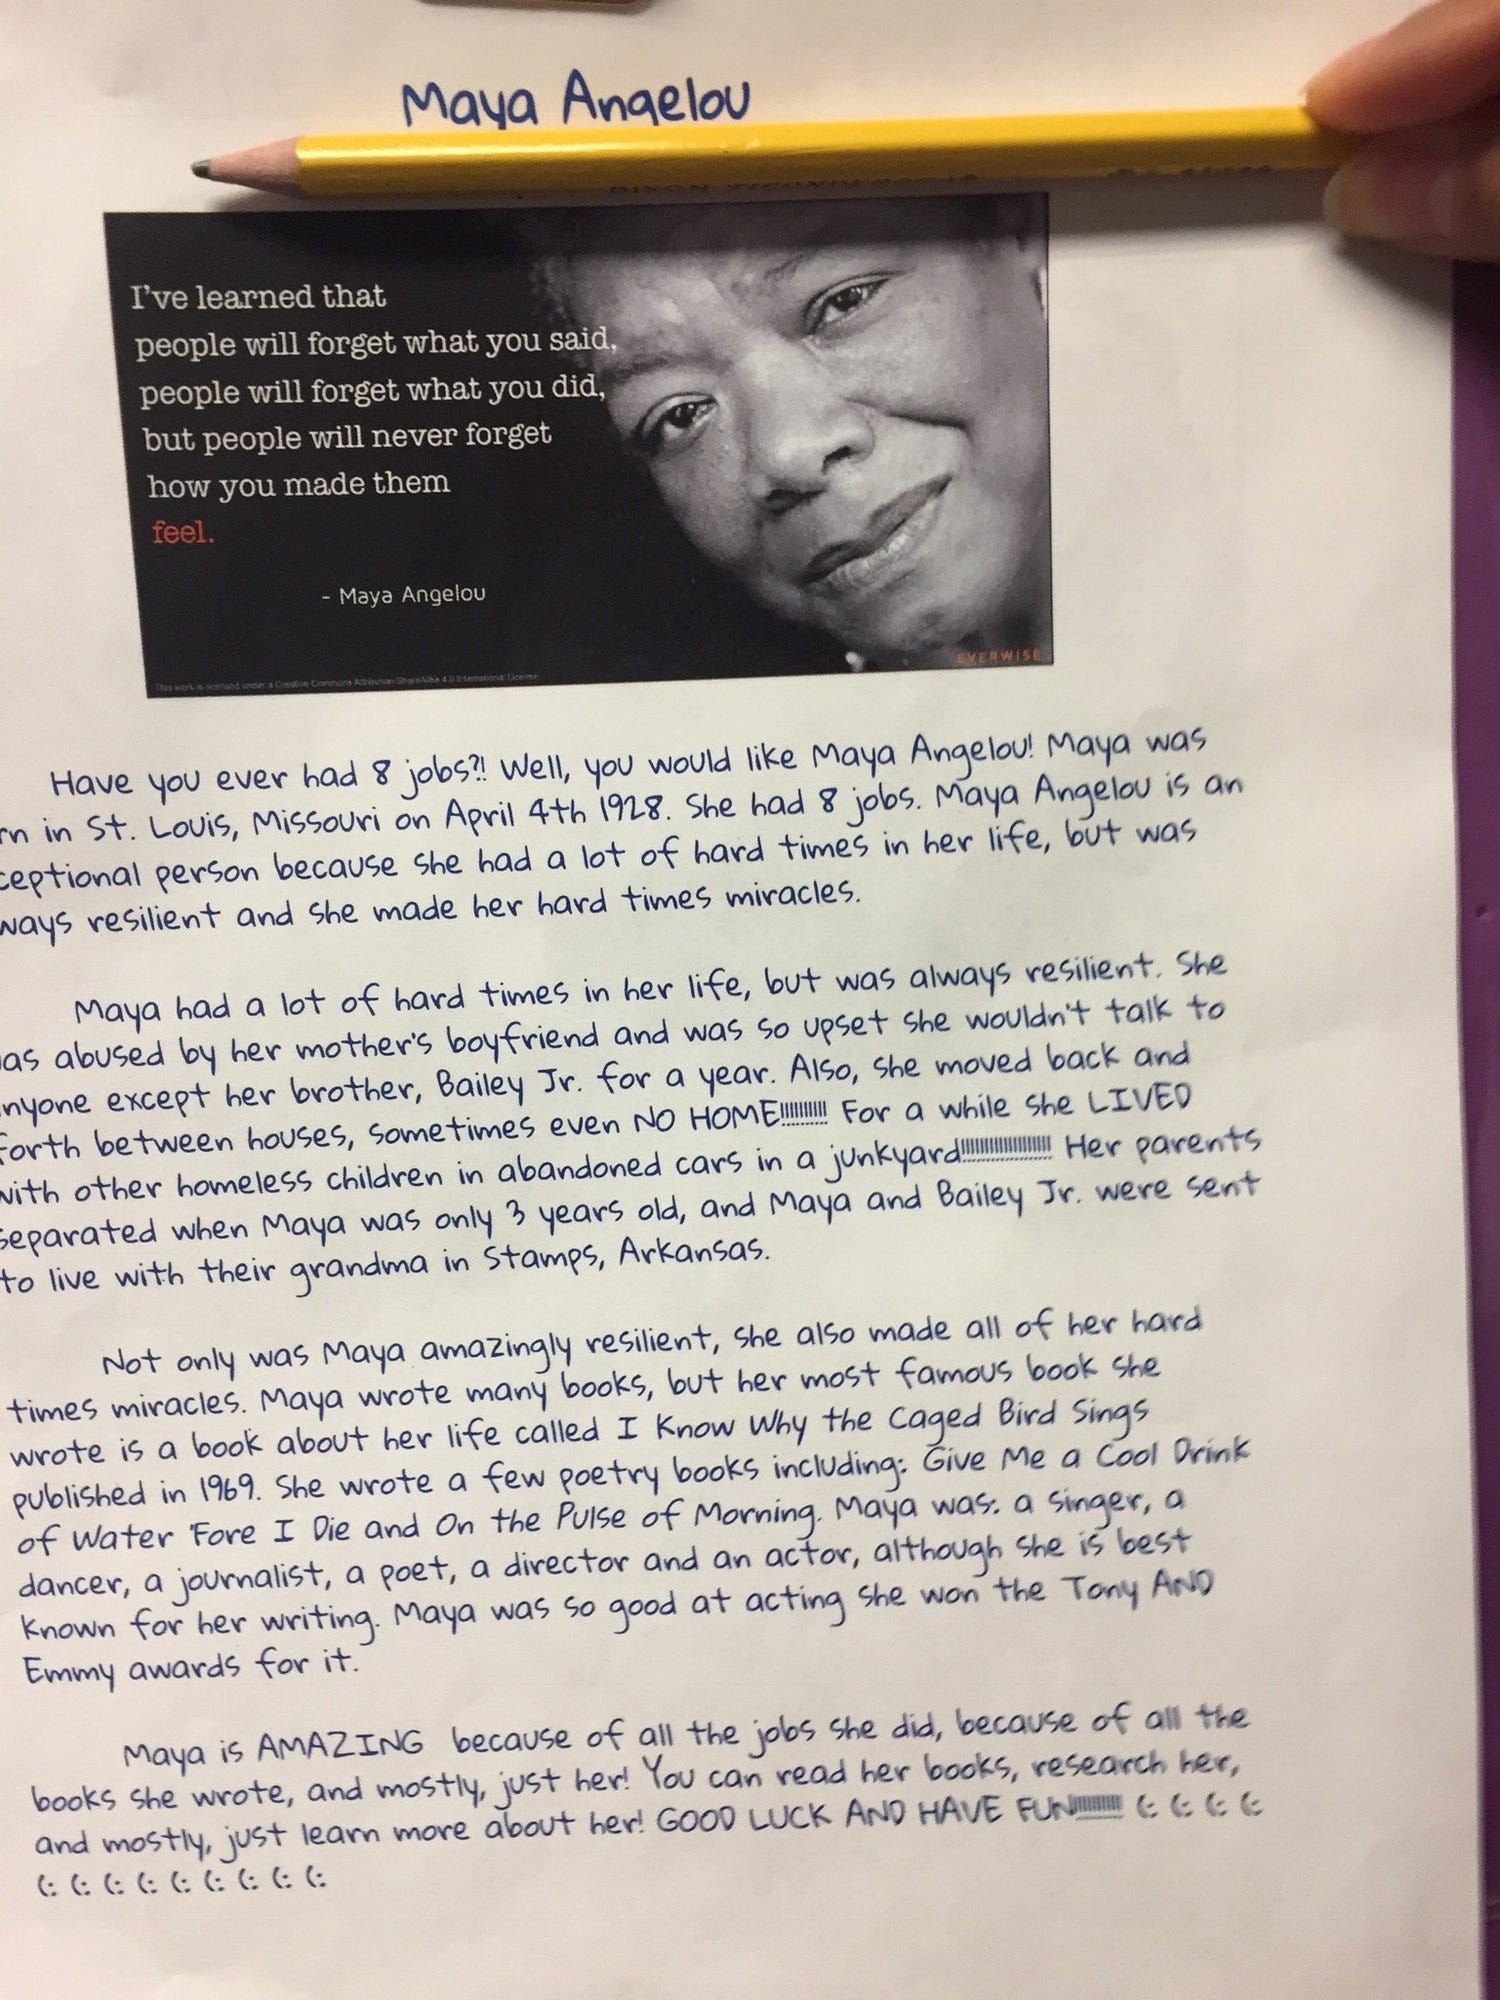 Maya Angelou
I've learned that
people will forget what you said,
people will forget what you did,
but people will never forget
how you made them
feel.
- Maya Angelou
EVERWISE
This work is licensed under a Creative Commons Attribution-ShareAlike 4.0 International License.
Have you ever had 8 jobs?! Well, you would like Maya Angelou! Maya was
rn in St. Louis, Missouri on April 4th 1928. She had 8 jobs. Maya Angelou is an
ceptional person because she had a lot of hard times in her life, but was
ways resilient and she made her hard times miracles.
Maya had a lot of hard times in her life, but was always resilient. She
as abused by her mother's boyfriend and was so upset she wouldn't talk to
nyone except her brother, Bailey Jr. for a year. Also, she moved back and
forth between houses, sometimes even NO HOME!!!!!!!!!! For a while she LIVED
with other homeless children in abandoned cars in a junkyard!!!!!!!!!!!!!!!!!!!! Her parents
separated when Maya was only 3 years old, and Maya and Bailey Jr. were sent
to live with their grandma in Stamps, Arkansas.
Not only was Maya amazingly resilient, she also made all of her hard
times miracles. Maya wrote many books, but her most famous book she
wrote is a book about her life called I Know Why the Caged Bird Sings
published in 1969. She wrote a few poetry books including: Give Me a Cool Drink
of Water 'Fore I Die and On the Pulse of Morning. Maya was: a singer, a
dancer, a journalist, a poet, a director and an actor, although she is best
known for her writing. Maya was so good at acting she won the Tony AND
Emmy awards for it.
Maya is AMAZING because of all the jobs she did, because of all the
books she wrote, and mostly, just her! You can read her books, research her,
and mostly, just learn more about her! GOOD LUCK AND HAVE FUN!!!!!!!!!! (: (: (: (:
(: (: (: (: (: (: (: (: (: